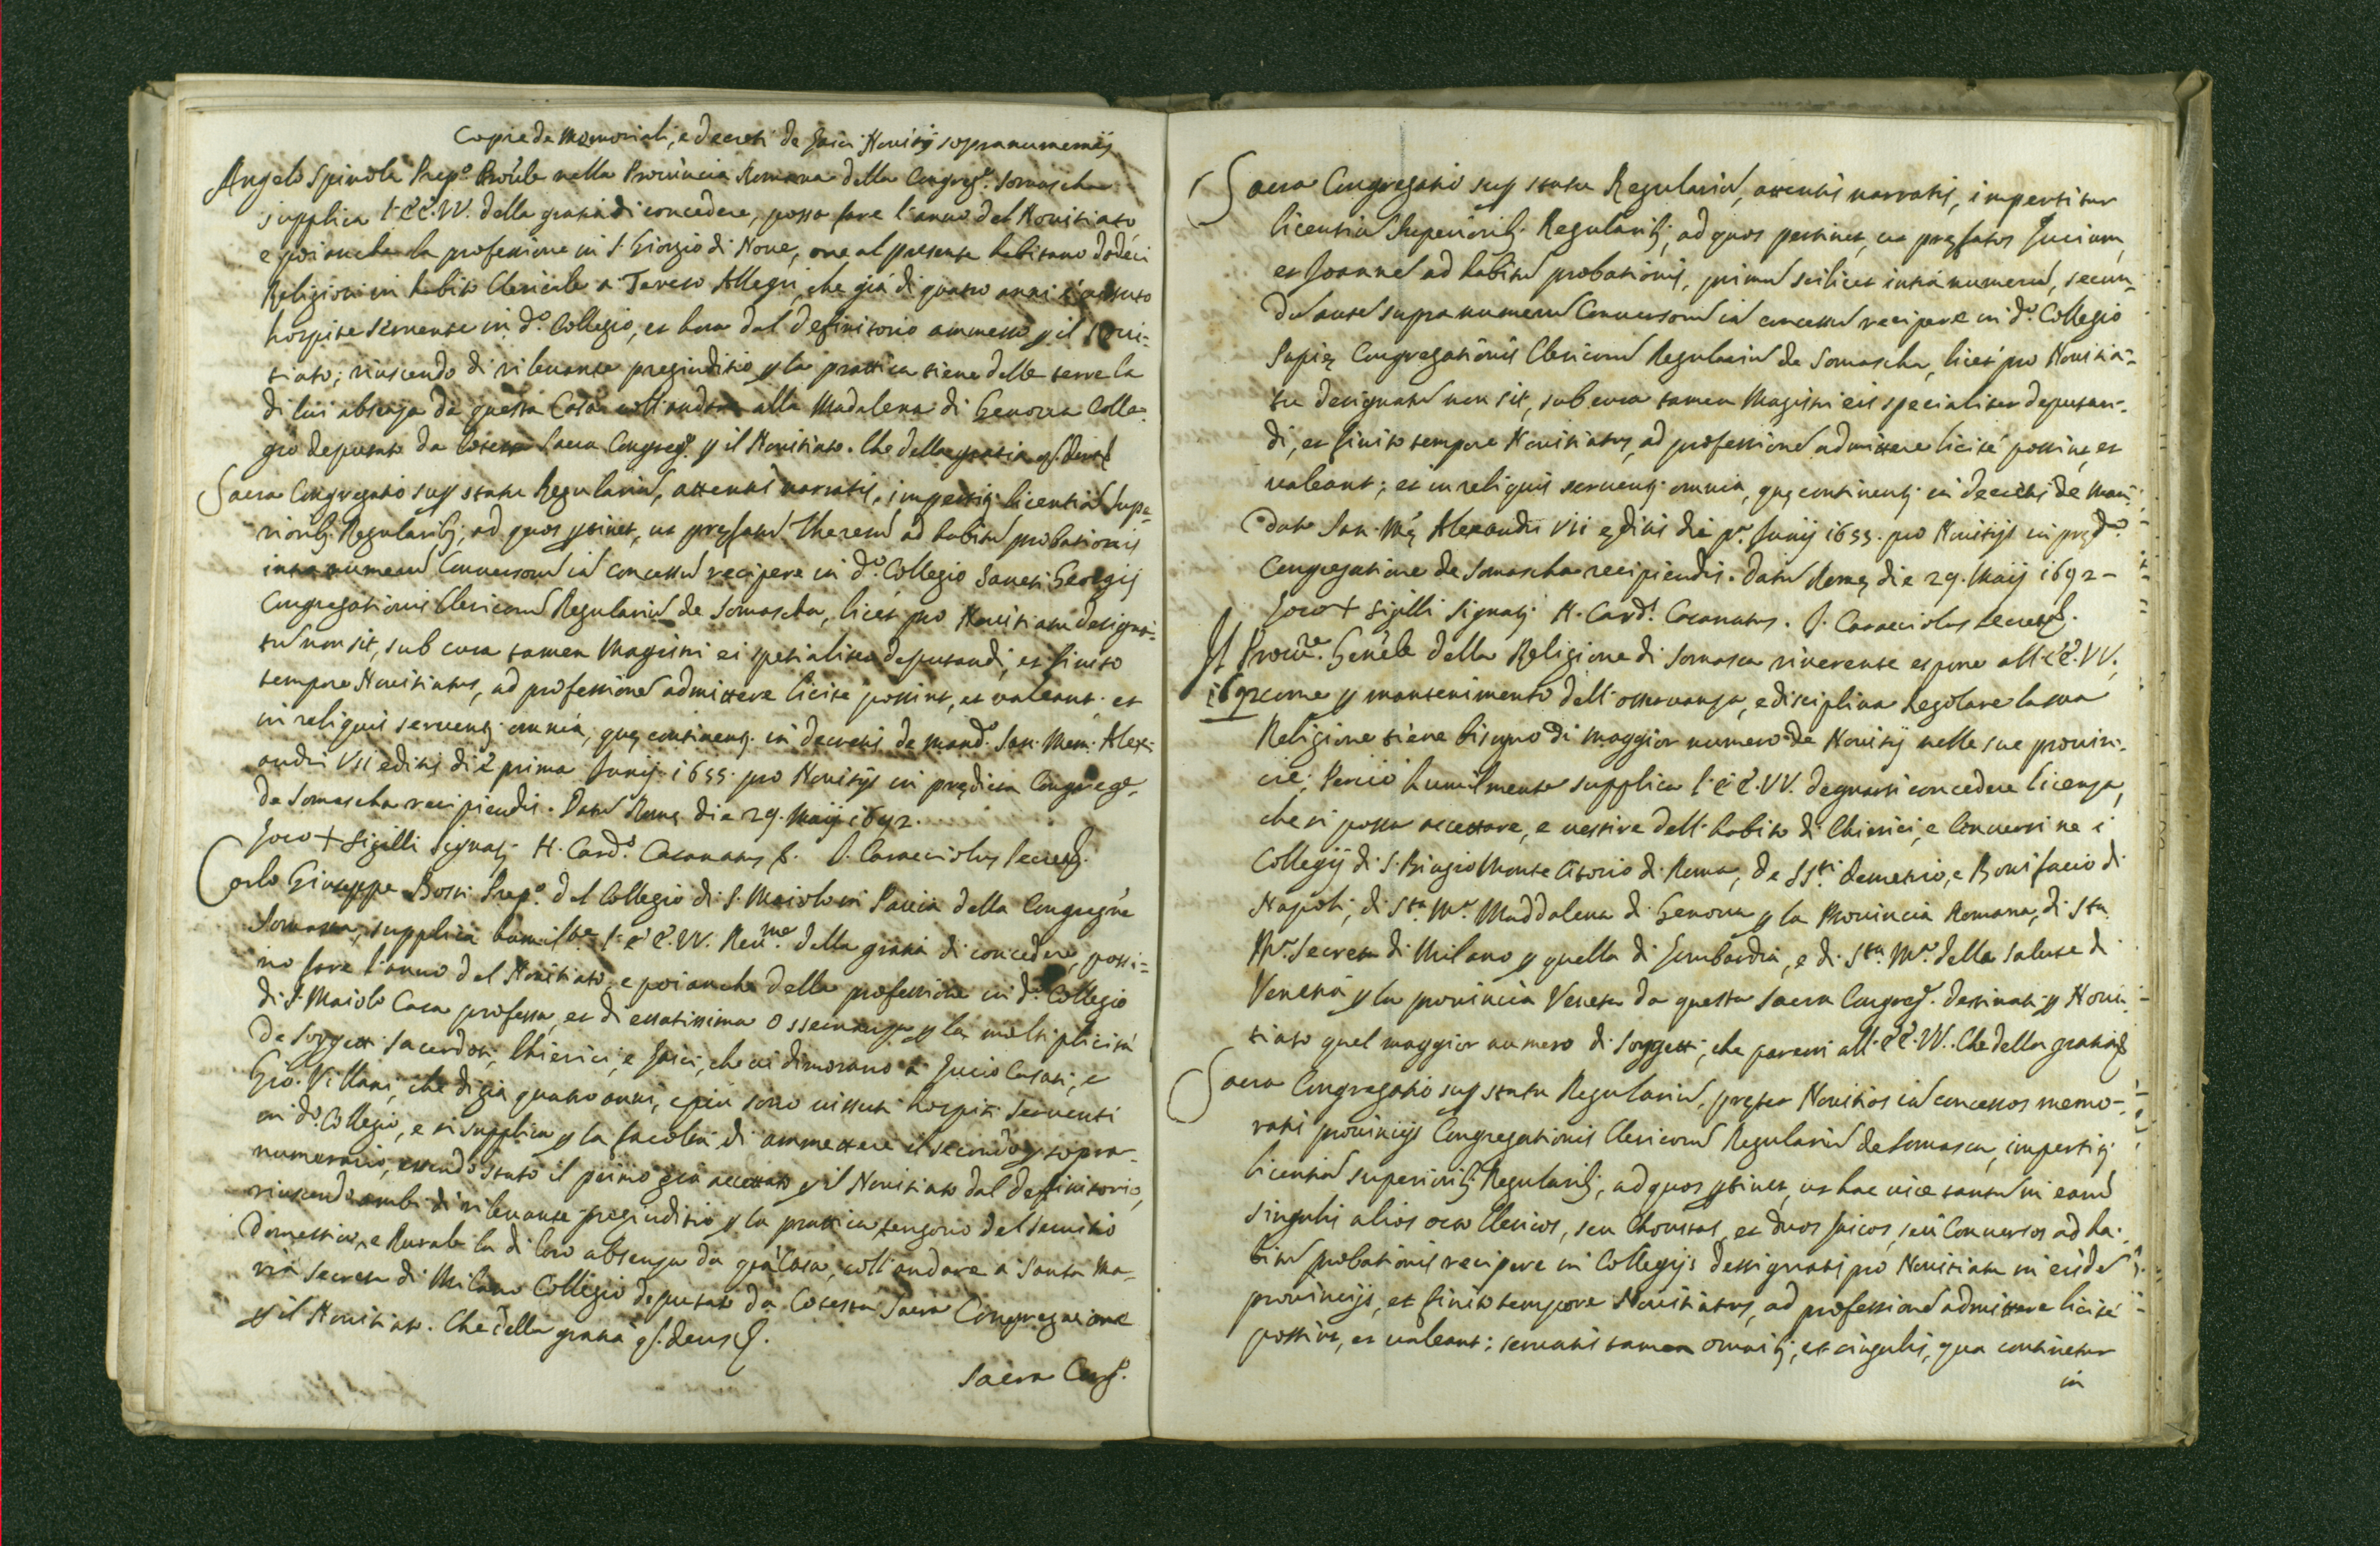 Copie de Memoriali, e decreti de laici Novitij sopranumerarij
Angelo Spinola Prep.o Prouī̄le nella Prouincia Romana della Congreg.e Somascha
supplica l'EE.VV. della gratia di concedere, possa fare l'anno del Nouitiato,
e poi anche la professione in S. Giorgio di Noue, oue al presente habitano dodeci
Religiosi in habito Clericale a Tereso Allegri, che già di quatro anni è vissuto
hospite seruente in d.o Collegio, et hora dal Definitorio ammesso p il Noui=
tiato; riuscendo di rileuante pregiuditio p la prattica tiene delle terre la
di lui absenza da questa Casa coll'andare alla Madalena di Genoua Colle=
gio deputato da Cotesta Sacra Congreg.e p il Nouitiato. Che della gratia q. Deus &
Sacra Congregatio sup statu Regulariū, attentis narratis, impertitj licentiā Supe=
riorib; Regularib; ad quos ptinet, ut prȩfatū Theresū ad habitū probationis
intra numerū Conuersorū iā concessū recipere in d.o Collegio Sancti Georgij
Congregationis Clericorū Regulariū de Somascha, licèt pro Nouitiatu designa=
tū non sit, sub cura tamen Magistri ei spetialiter deputandi, et finito
tempore Nouitiatus, ad professionē admittere licitè possint, et valeant; et
in reliquis seruentj omnia, quȩ continentj in decretis de mand.o San. Mem. Alex=
andri VII editis diè prima Junij 1655. pro Nouitijs in prȩdicta Congreg.e
de Somascha recipiendis. Datū Romȩ die 29. Maij 1692.
Loco + Sigilli Signatj H. Card.s Casanatus &. J. Caracciolus Secret.s
Carlo Giuseppe Bossi Prep.o del Collegio di S. Maiolo in Pauia della Congregne
Somasca, supplica humilte l'EE.VV. Reu.me della gratia di concedere, possi=
no fare l'anno del Nouitiato, e poi anche della professione in d.o Collegio
di S. Maiolo Casa professa, et di esatissima Osseruanza p la moltiplicità
de soggetti Sacerdoti, Chierici, e laici, che ui dimorano a Lucio Casati, e
Gio. Villani, che di già quatro anni, e più sono uissuti hospiti Seruenti
in d.o Collegio, e si supplica p la facoltà di ammettere il secondo p sopra=
numerario, essendo stato il primo già accettato p il Nouitiato dal Deffinitorio,
riuscendo ambi di rileuante pregiuditio p la prattica tengono del seruitio
domestico, e Rurale la di loro absenza da qsta Casa, coll'andare a Santa Ma=
ria Secreta di Milano Collegio deputato da Cotesta Sacra Congregatione
p il Nouitiato. Che della gratia q. Deus &.
Sacra Cong.
Sacra Congregatio sup statu Regulariū, attentis narratis, impertitur
licentiā Superiorib; Regularib; ad quos pertinet, ut prȩfatos Lucium,
et Joannē ad habitū probationis, primū scilicet intrà numerū, secun=
dū autē supra numerū Conuersorū iā concessū recipere in d.o Collegio
Papiȩ Congregationis Clericorū Regulariū de Somascha, licèt pro Nouitia=
tu designatū non sit, sub cura tamen Magistri eis specialiter deputan=
di, et finito tempore Nouitiatus, ad professionē admittere licitè possint, et
ualeant; et in reliquis seruentj omnia, quȩ continentj in decretis de man=
dato San. Mȩ. Alexandri VII editis die p.a Junij 1655. pro Nouitijs in prȩd.a
Congregatione de Somascha recipiendis. Datū Romȩ die 29. Maij 1692 -
Loco + Sigilli Signatj H. Card.s Casanatus. J. Caracciolus Secret.s
Il Procu.re Genēle della Religione di Somasca riuerente espone all'EE.VV.
1692 come p mantenimento dell'osseruanza, e disciplina Regolare la sua
Religione tiene bisogno di maggior numero de Nouitij nelle sue prouin=
cie; Perciò humilmente supplica l'EE.VV. degnarsi concedere licenza,
che si possa accettare, e uestire dell'habito di Chierici, e Conuersi ne i
Collegij di S. Biagio Monte Citorio di Roma, de SS.ti Demetrio, e Bonifacio di
Napoli, di S.ta M.a Maddalena di Genoua p la Prouincia Romana, di S.ta
M.a Secreta di Milano p quella di Lombardia, e di S.ta M.a della Salute di
Venetia p la prouincia Veneta da questa Sacra Congreg.e destinati p Noui=
tiato quel maggior numero di soggetti, che parerà all'EE.VV. Che della gratia &
Sacra Congregatio sup statu Regulariū, prȩter Nouitios iā concessos memo=
ratis prouincijs Congregationis Clericorū Regulariū de Somasca, impertitj
licentiā superiorib; Regularib; ad quos ptinet, ut hac uice tantū in earū
singulis alios octo Clericos, seu Choristas, et duos laicos, seù Conuersos ad ha=
bitū probationis recipere in Collegijs designatis pro Nouitiatu in eisdē
prouincijs, et finito tempore Nouitiatus, ad professionē admittere licitè
possint, et ualeant; seruatis tamen omnib; et singulis, qua continetur
in